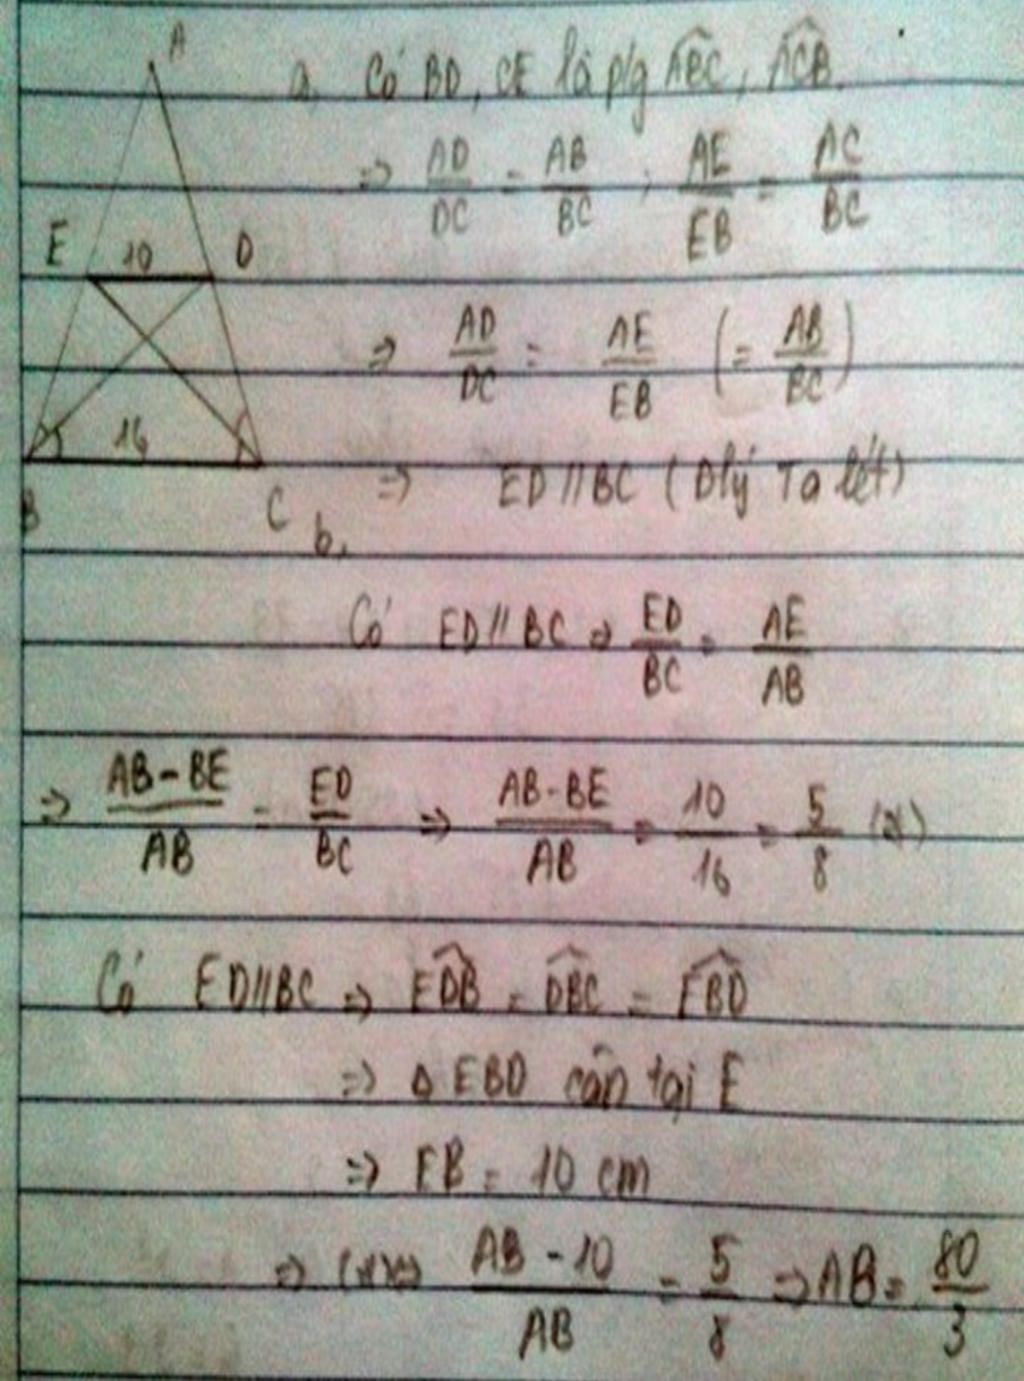 A
a, Có BD, CE là p/g \widehat{ABC}, \widehat{ACB}.
⇒ AD/DC = AB/BC ; AE/EB = AC/BC
E 10 D
⇒ AD/DC = AE/EB (= AB/BC)
16
⇒ ED // BC (Đlý Ta lét)
B C b,
Có ED // BC ⇒ ED/BC = AE/AB
⇒ (AB - BE)/AB = ED/BC ⇒ (AB - BE)/AB = 10/16 = 5/8 (*)
Có ED // BC ⇒ \widehat{EDB} = \widehat{DBC} = \widehat{EBD}
⇒ Δ EBD cân tại E
⇒ EB = 10 cm
⇒ (*) ⇔ (AB - 10)/AB = 5/8 ⇒ AB = 80/3